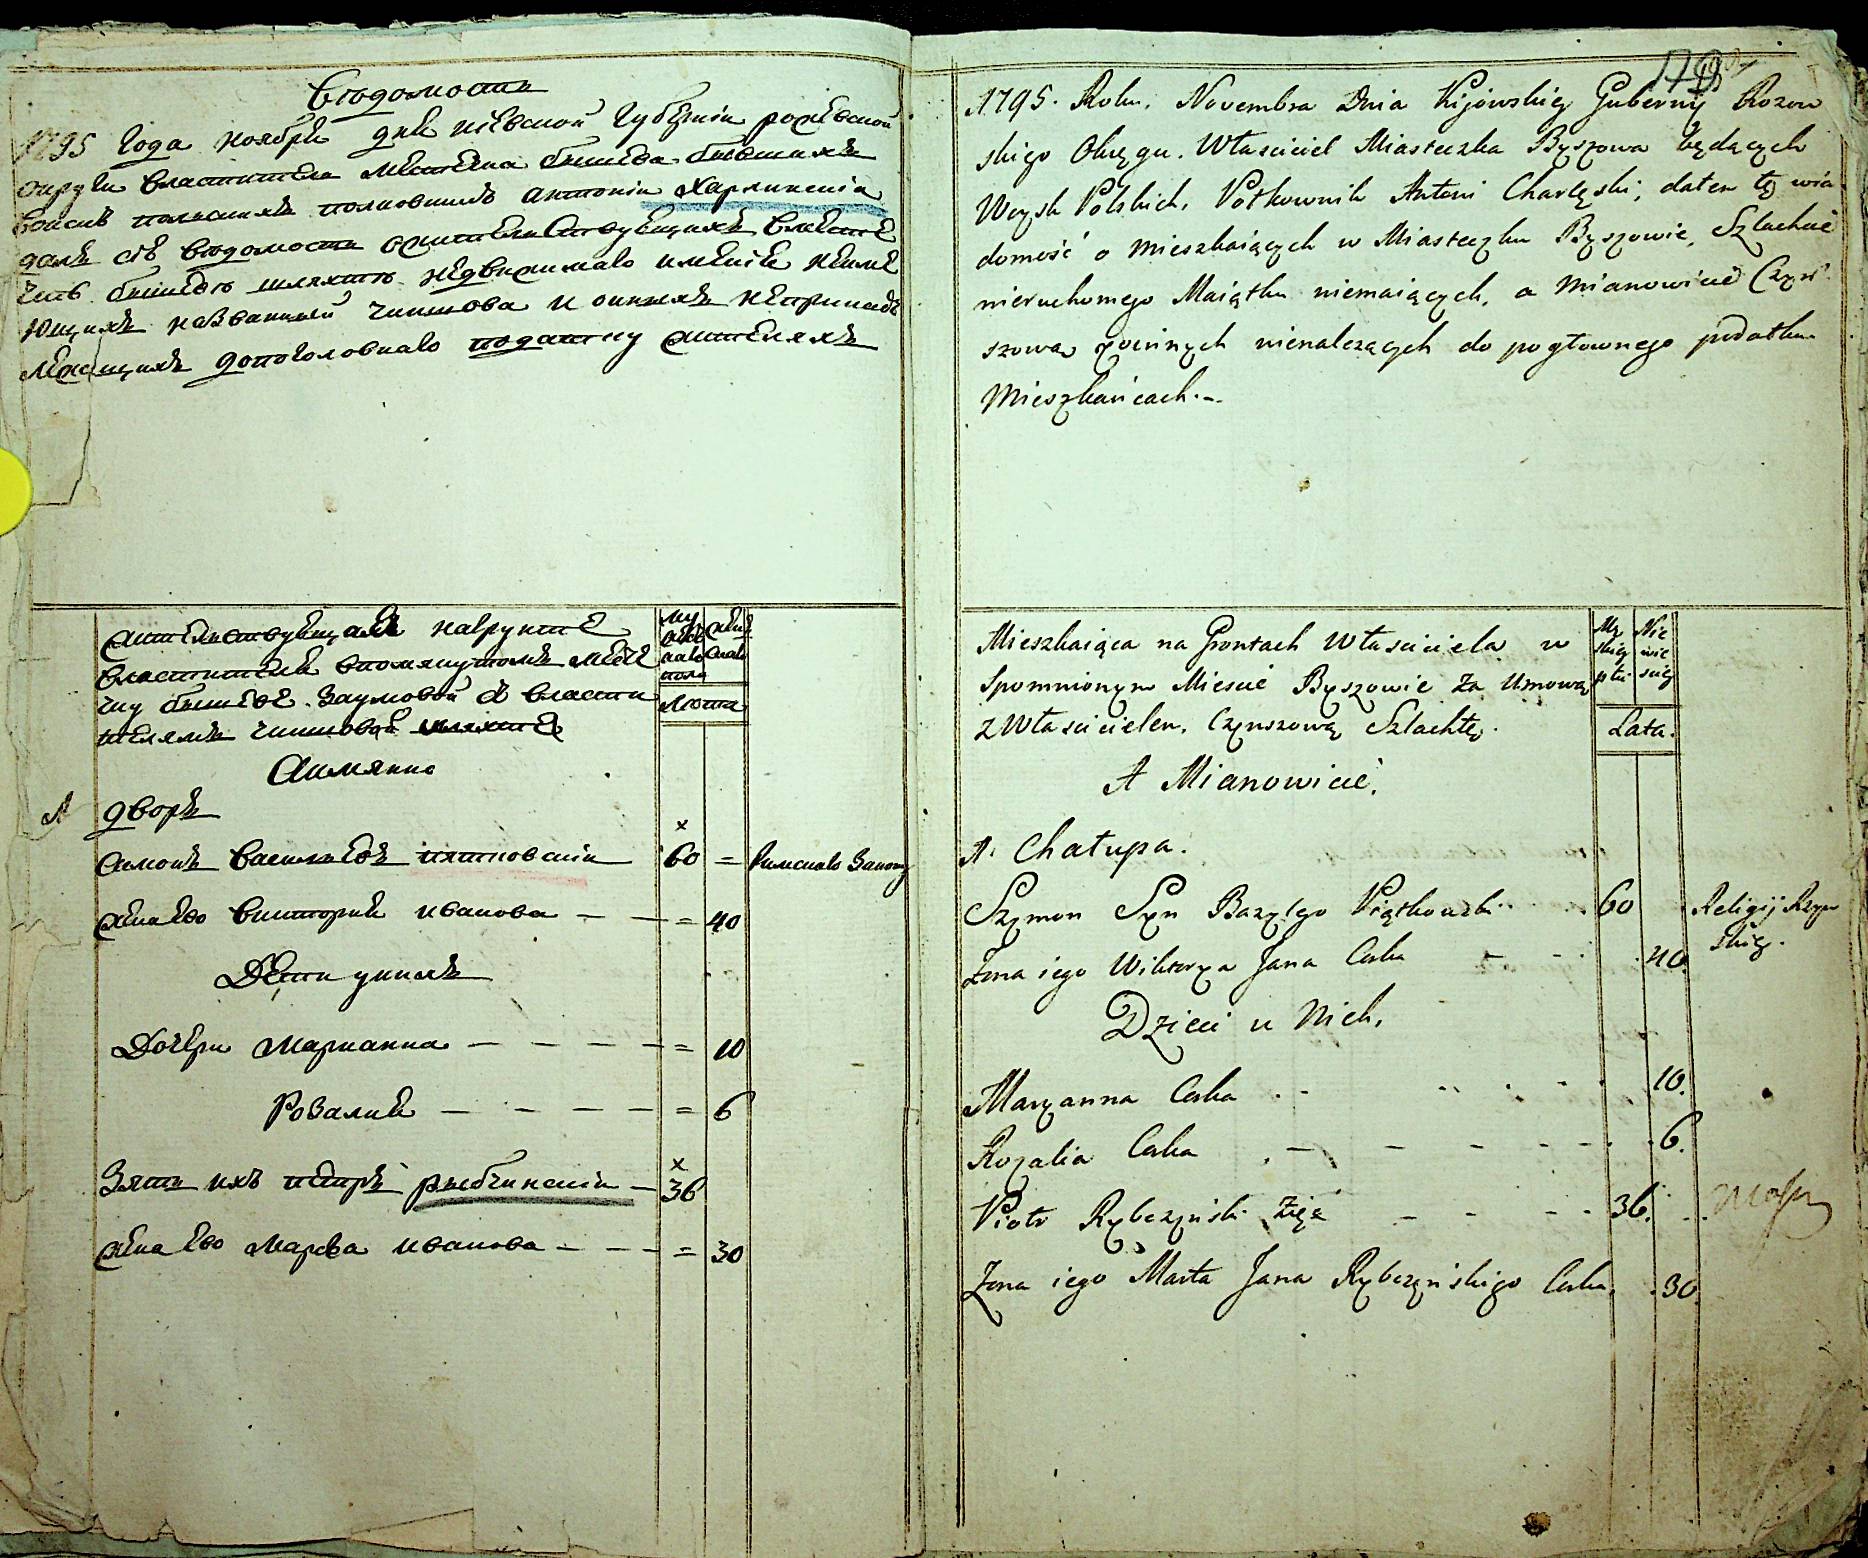 Вѣдомость
1795 Года ноября дня кіевской губерніи рожевской
округи властитель местечка бышева бывшихъ
войскъ полскихъ полковникъ антоній Харлинскій
далъ сію вѣдомость о жителствующихъ вместе
чкѣ бышевѣ шляхтѣ недвижимаго именія неиме
ющихъ названной чиншова и онныхъ непринадъ
лежащихъ доподоловнаго податку жителяхъ
жителствующая нагрунтѣ
властителя вспомянутомъ месте
чку бышевѣ заумовой з власти
телемъ чиншовой шляхтѣ
мужескаго пола
женскаго
Лѣта
А имянно
А дворъ
Симонъ Василевъ пятковскій 60 = Римскаго Закону
жена его викторія иванова — — = 40
Дѣти унихъ
Дочери марианна — — — — = 10
Розалия — — — — = 6
Зять ихъ петръ рыбчинскій — 36
жена его марфа иванова — — — = 30
179
1795. Roku. Novembra Dnia Kijowskiey Gubernij Rozow
skiego Okręgu. Właściciel Miasteczka Byszowa będących
Woysk Polskich, Połkownik Antoni Charlęski, datem tę wia
domość o mieszkaiących w Miasteczku Byszowie, Szlachcie
nieruchomego Maiątku niemaiących, a mianowicie Czyn
szowa y innych nienalezących do pogłownego podatku
Mieszkańcach.–
Mieszkaiąca na Grontach Właściciela w
Spomnionym Miescie Byszowie za Umową
z Właścicielem. Czynszową Szlachtę.
Mę skiey płci
Nie wie sciey
Lata.
A Mianowicie,
A. Chałupa.
Szymon Syn Bazylego Piątkowski 60 Religij Rzym
skiey.
Zona iego Wiktorya Jana Corka 40.
Dzieci u Nich,
Maryanna Corka 10.
Rozalia Corka 6.
Piotr Rybczynski Zięć 36.
Zona iego Marta Jana Rybczynskiego Corka, 30.